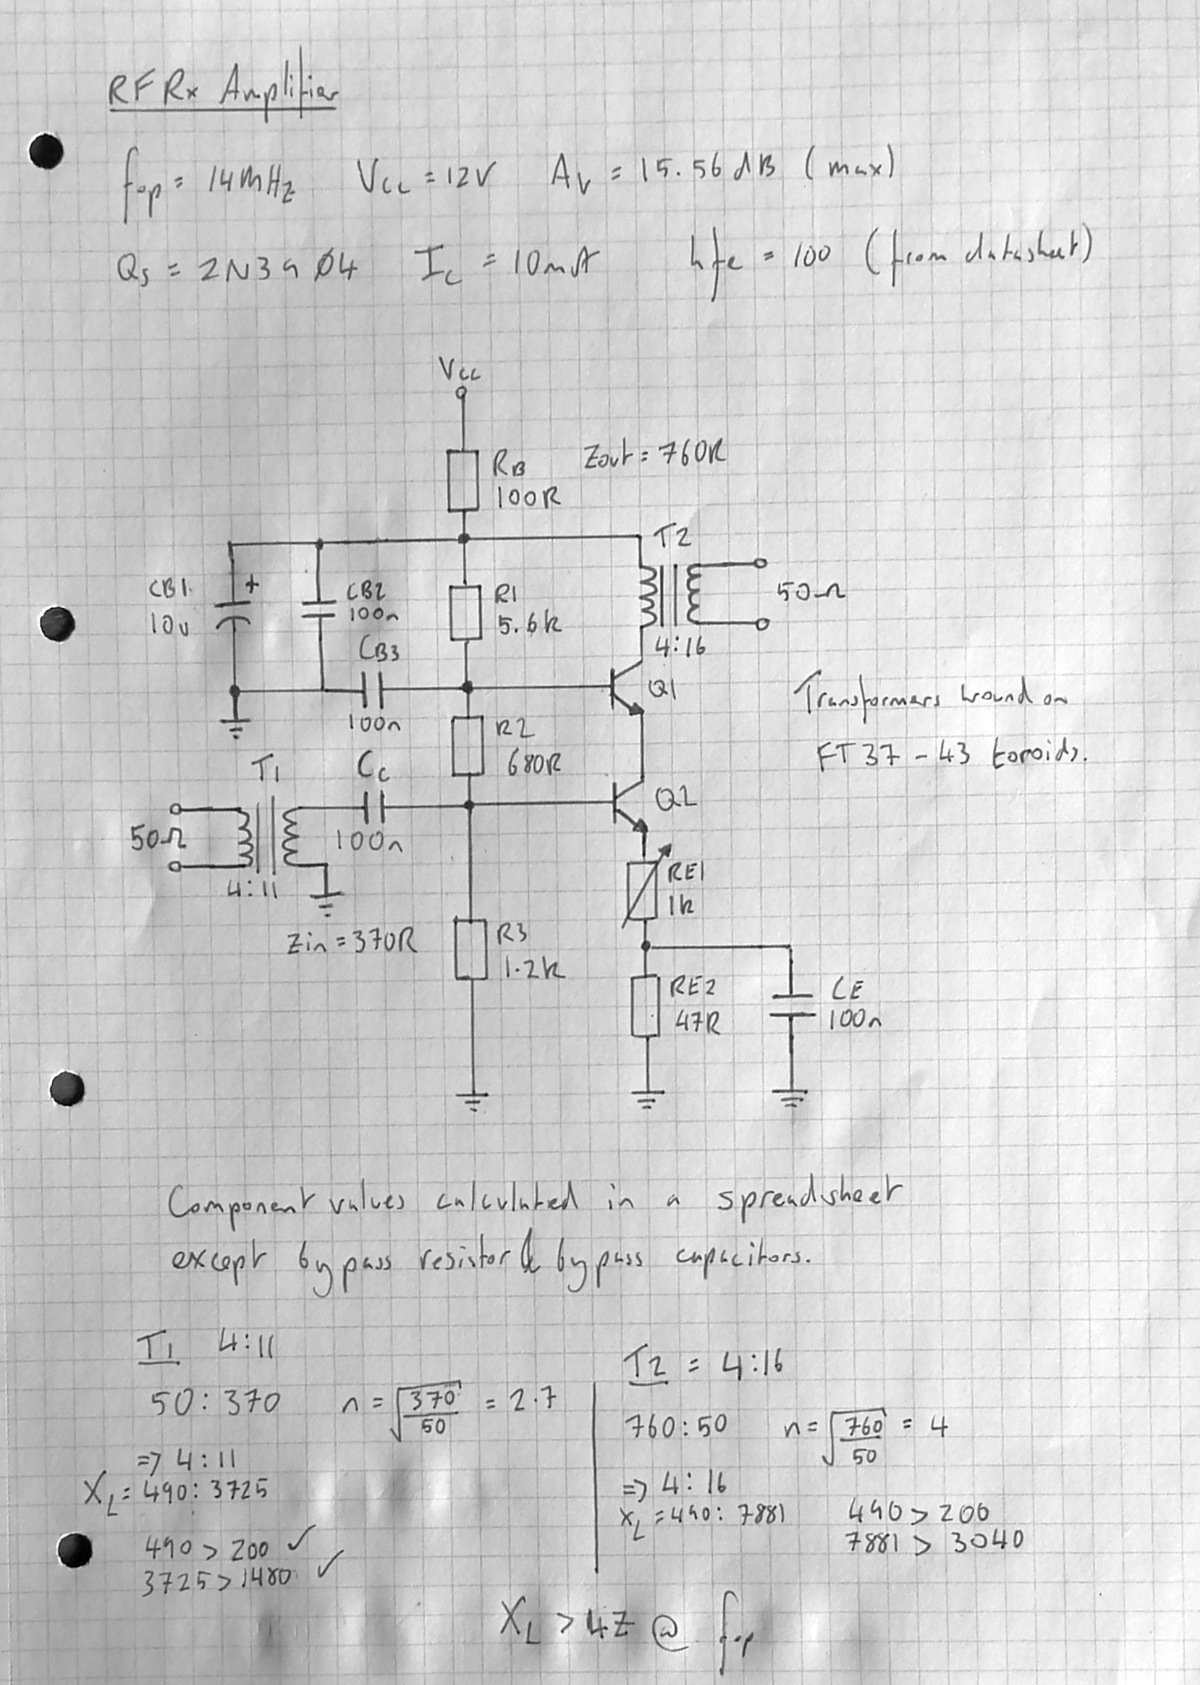 RF Rx Amplifier
fop = 14MHz Vcc = 12V Av = 15.56dB (max)
Qs = 2N39Ø4 Ic = 10mA hfe = 100 (from datasheet)
Vcc
RB
100R
Zout = 760R
T2
CB1
10u
+
CB2
100n
R1
5.6k
50Ω
4:16
CB3
100n
Q1
Transformers wound on
FT37-43 toroids.
R2
680R
T1
Cc
100n
Q2
50Ω
4:11
RE1
1k
Zin = 370R
R3
1.2k
RE2
47R
CE
100n
Component values calculated in a spreadsheet
except bypass resistor & bypass capacitors.
T1 4:11
50:370 n = √370/50 = 2.7
=> 4:11
XL = 490:3725
490 > 200 ✓
3725 > 1480 ✓
T2 = 4:16
760:50 n = √760/50 = 4
=> 4:16
XL = 490:7881 490 > 200
7881 > 3040
XL > 4Z @ fop